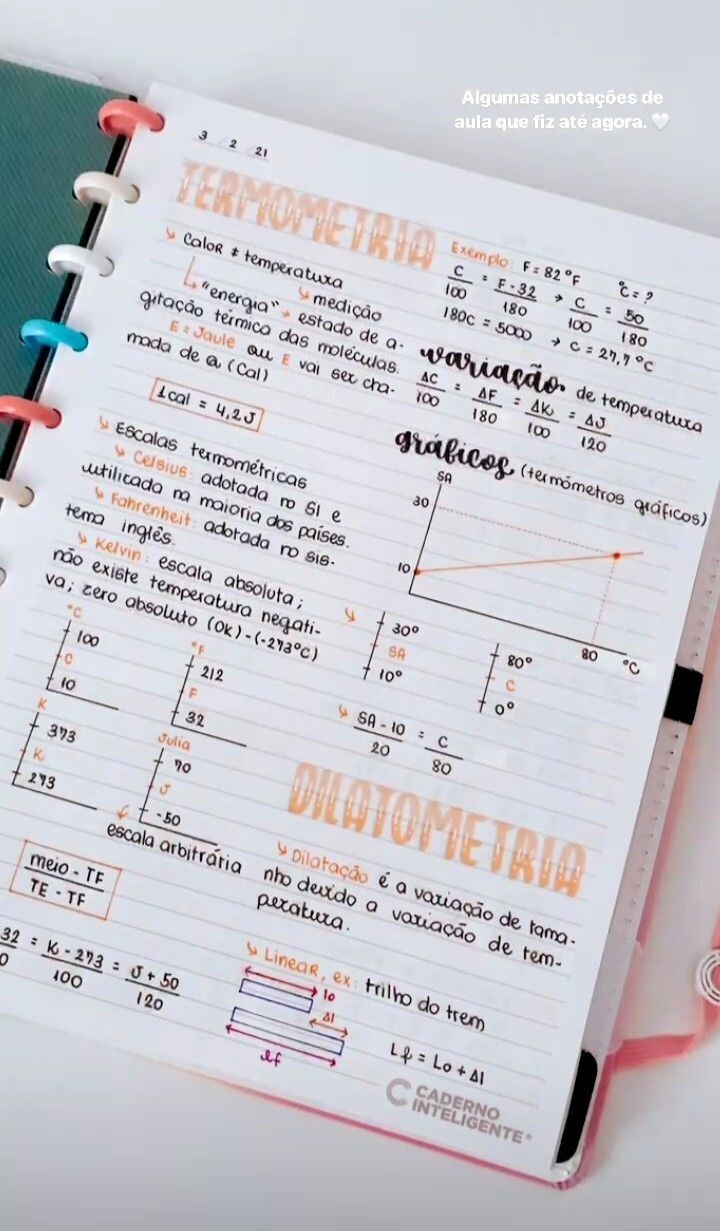 Algumas anotações de
aula que fiz até agora. 🤍
3 / 2 / 21
TERMOMETRIA
↘ Calor ≠ temperatura
↳ "energia" ↘ medição
→ estado de a-
gitação térmica das moléculas.
E = Jaule ou E vai ser cha-
mada de Q (Cal)
1 cal = 4,2 J
↘ Escalas termométricas
↘ Celsius: adotada no SI e
utilizada na maioria dos países.
↘ Fahrenheit: adotada no sis-
tema inglês.
↘ Kelvin: escala absoluta;
não existe temperatura negati-
va; zero absoluto (0k) - (-273°C)
°C
100
C
10
°F
212
F
32
K
373
K
273
Julia
70
J
-50
escala arbitrária
meio - TF
TE - TF
32 = K - 273 = J + 50
0 100 120
Exemplo: F = 82°F °C = ?
C/100 = F - 32/180 → C/100 = 50/180
180C = 5000 → C = 27,7 °C
variação de temperatura
ΔC/100 = ΔF/180 = ΔK/100 = ΔJ/120
gráficos (termômetros gráficos)
SA
30
10
80 °C
30°
SA
10°
80°
C
0°
↘ SA - 10/20 = C/80
DILATOMETRIA
↘ Dilatação é a variação de tama-
nho devido a variação de tem-
peratura.
↘ Linear, ex: trilho do trem
lo
Δl
lf
Lf = Lo + Δl
CADERNO
INTELIGENTE®